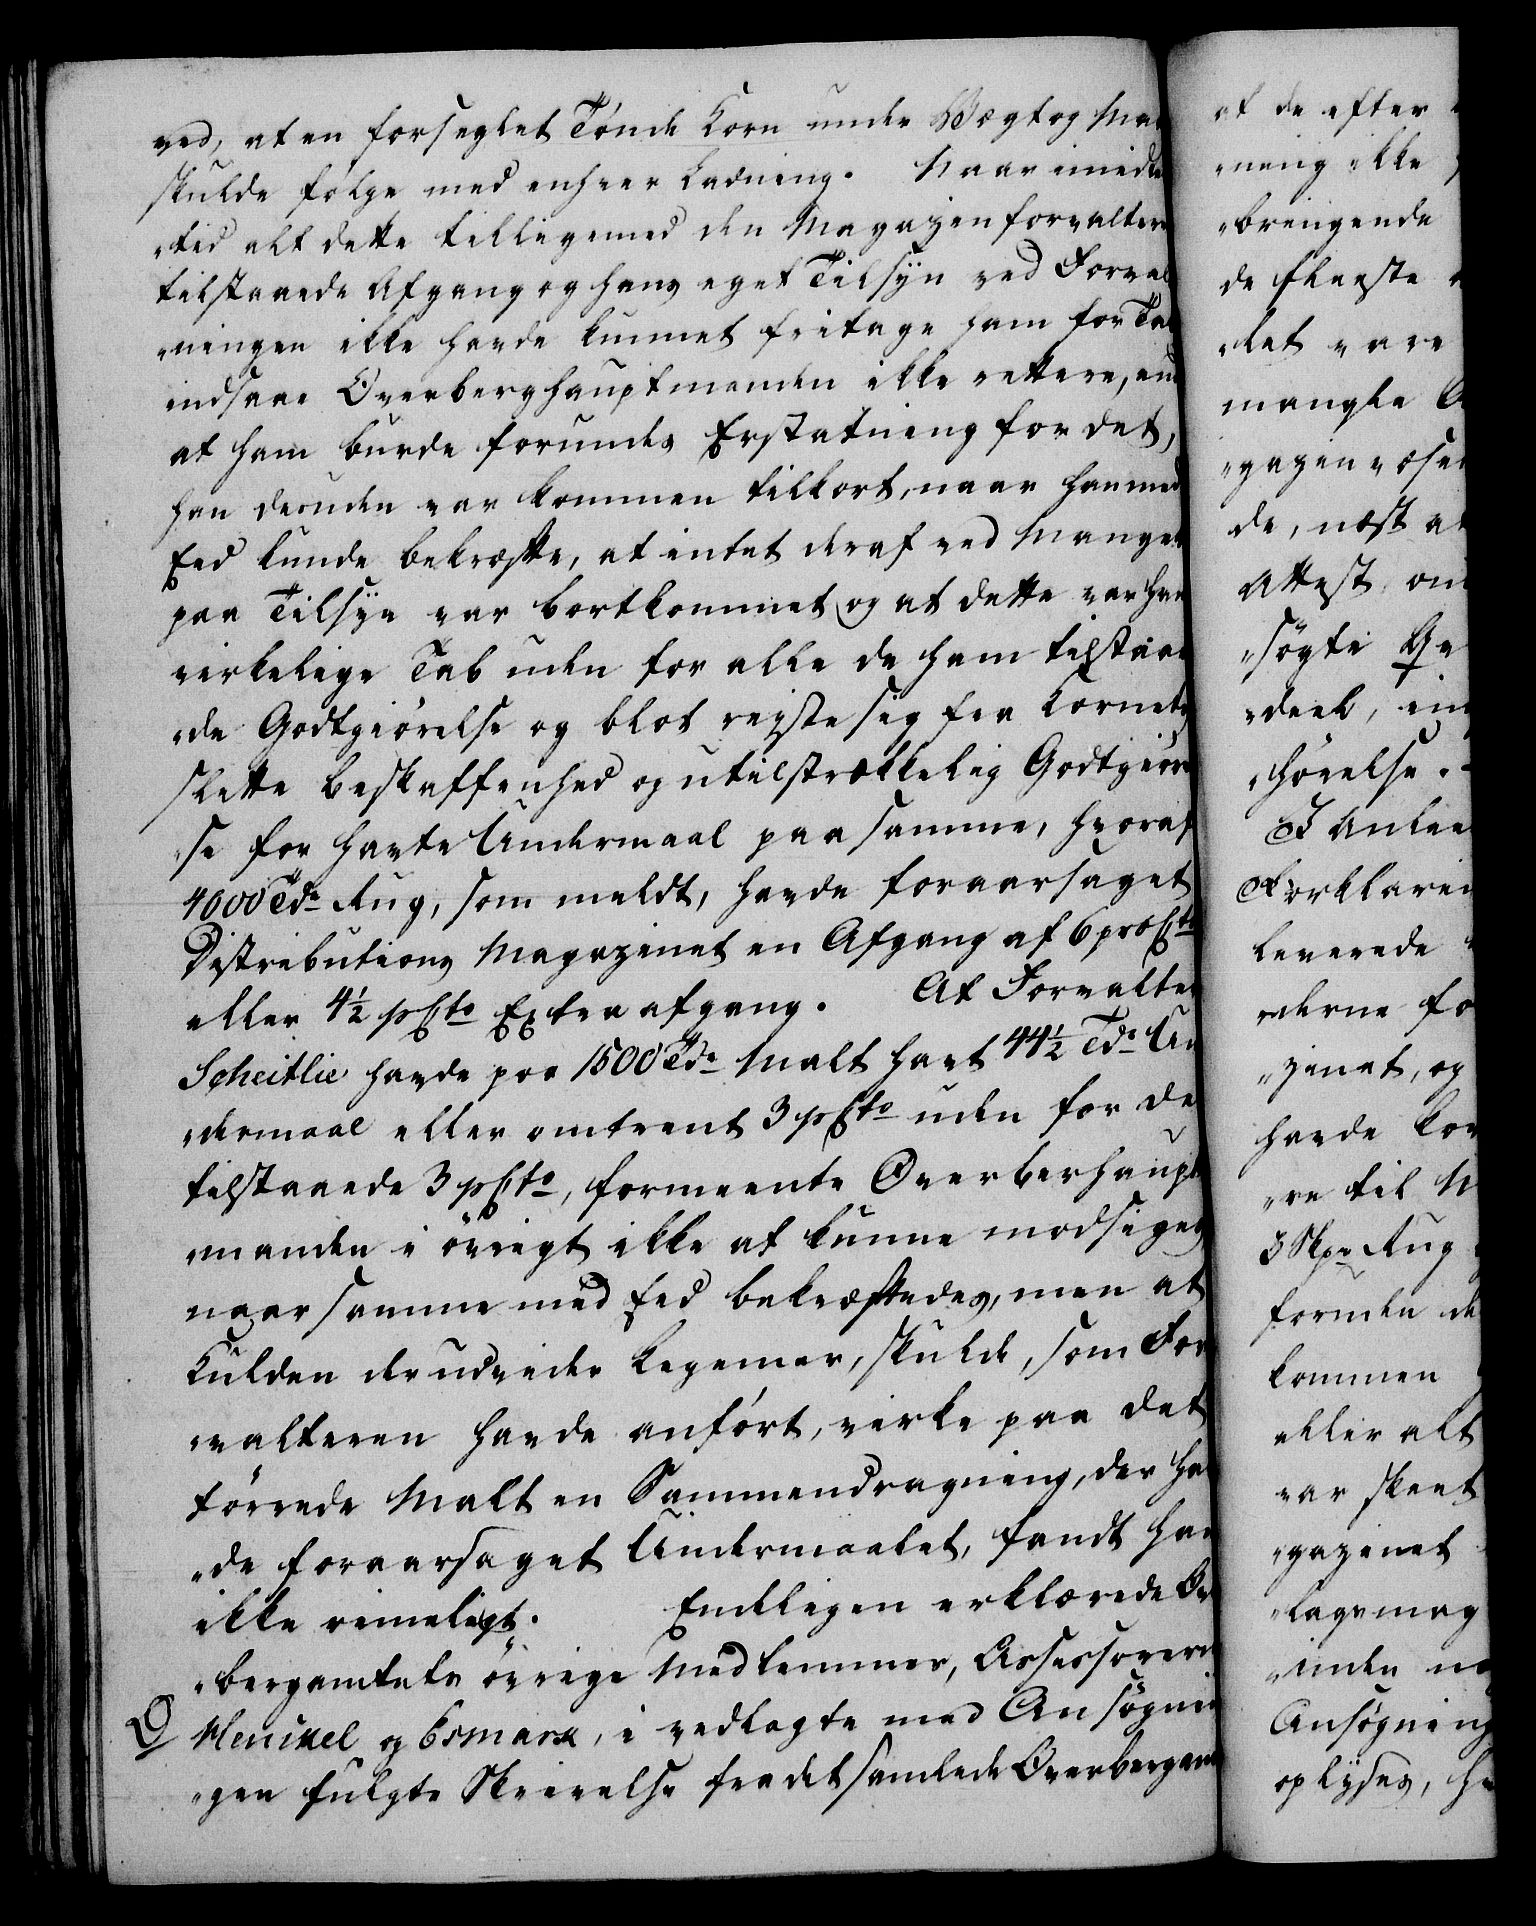 ved, at en forseglet Tönde Korn under Vægt og Maa
skulde følge med enhver Ladning. Naar imidler
„tid alt dette tilligemed den Magazinforvaltere
tilstaaede Afgang og hans eget Tilsyn ved Forval
„ningen ikke havde kunnet fritage ham for Tab
indsaae Overberghauptmanden ikke rettere, end
at ham burde forundes Erstatning for det,
han desuden var kommen tilkort, naar han med
Eed kunde bekræfte, at intet deraf ved Mangel
paa Tilsyn var bortkommet og at dette var han
virkelige Tab uden for alle de ham tilstaae
„de Godtgiörelse og blot rejste sig fra Kornets
slette Beskaffenhed og utilstrækkelig Godtgiörel
„se for havte Undermaal paa samme, hvoraf
4000 Tdr Rug, som meldt, havde foraarsaget
Distributions Magazinet en Afgang af 6 proCto
eller 4½ pCto Extra afgang. At Forvalter
Scheitlie havde paa 1500 Tdr Malt havt 44½ Tdr Un
„dermaal eller omtrent 3 pCto uden for de
tilstaaede 3 pCto, formeente Overberhaupt
„manden i övrigt ikke at kunne modsiges
naar samme med Eed bekræftedes, men at
Kulden der udvider Legemer, skulde, som For
„valteren havde anført, virke paa det
törrede Malt en Sammendragning, der hav
„de foraarsaget Undermaalet, fandt han
ikke rimeligt. Endeligen erklærede Ov
„bergamtets övrige Medlemmer, Assessorerne
Henckel og Esmark, i vedlagte med Ansögnin
„gen fulgte Skrivelse fra det samlede Overbergam
at de efter
„ning ikke
„bringende
de fleeste
„let være
mangle
„gazinvæse
de, næst at
Attest om
„sögte
„deel,
„hörelse.
I Anlee
Forklarin
leverede
„derne fo
„zinet, og
havde kor
„re til M
3 Skpr Rug
foruden de
kommen
eller alt
var skeet
„gazinet
„lagsmag
„inden
Ansögning
oplyses,